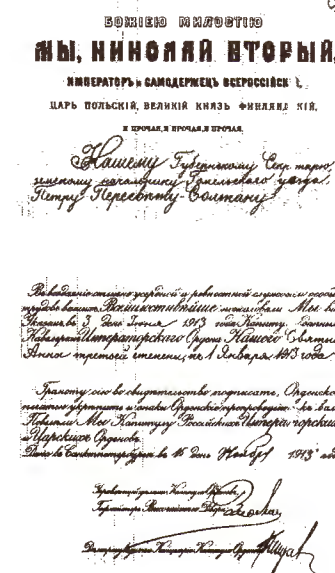 БОЖІЕЮ МИЛОСТІЮ
МЫ, НИКОЛАЙ ВТОРЫЙ,
ИМПЕРАТОРЪ и САМОДЕРЖЕЦЪ ВСЕРОССІЙСК
ЦАРЬ ПОЛЬСКІЙ, ВЕЛИКІЙ КНЯЗЬ ФИНЛЯНД КІЙ,
И ПРОЧАЯ, И ПРОЧАЯ, И ПРОЧАЯ.
Нашему Губернскому Секретарю
земскому начальнику Гомельскаго уѣзда,
Петру Пересвѣту-Солтану
Въ воздаяніе отлично усердной и ревностной службы и особыхъ
трудовъ вашихъ Всемилостивѣйше пожаловали Мы васъ
Указомъ въ 3 день Іюня 1913 года Капитулу даннымъ
Кавалеромъ Императорскаго Ордена Нашего Святыя
Анны третьей степени, къ 1 Января 1913 года
Грамоту сію во свидѣтельство подписать, Орденскою
печатью укрѣпить и знаки Орденскіе препроводить къ вамъ
Повелѣли Мы Капитулу Россійскихъ Императорскихъ
и Царскихъ Орденовъ.
Дана въ Санктпетербургѣ въ 15 день Ноября 1913 года
Управляющій дѣлами Капитула Орденовъ,
Гофмейстеръ Высочайшаго Двора
Капитула Орденовъ